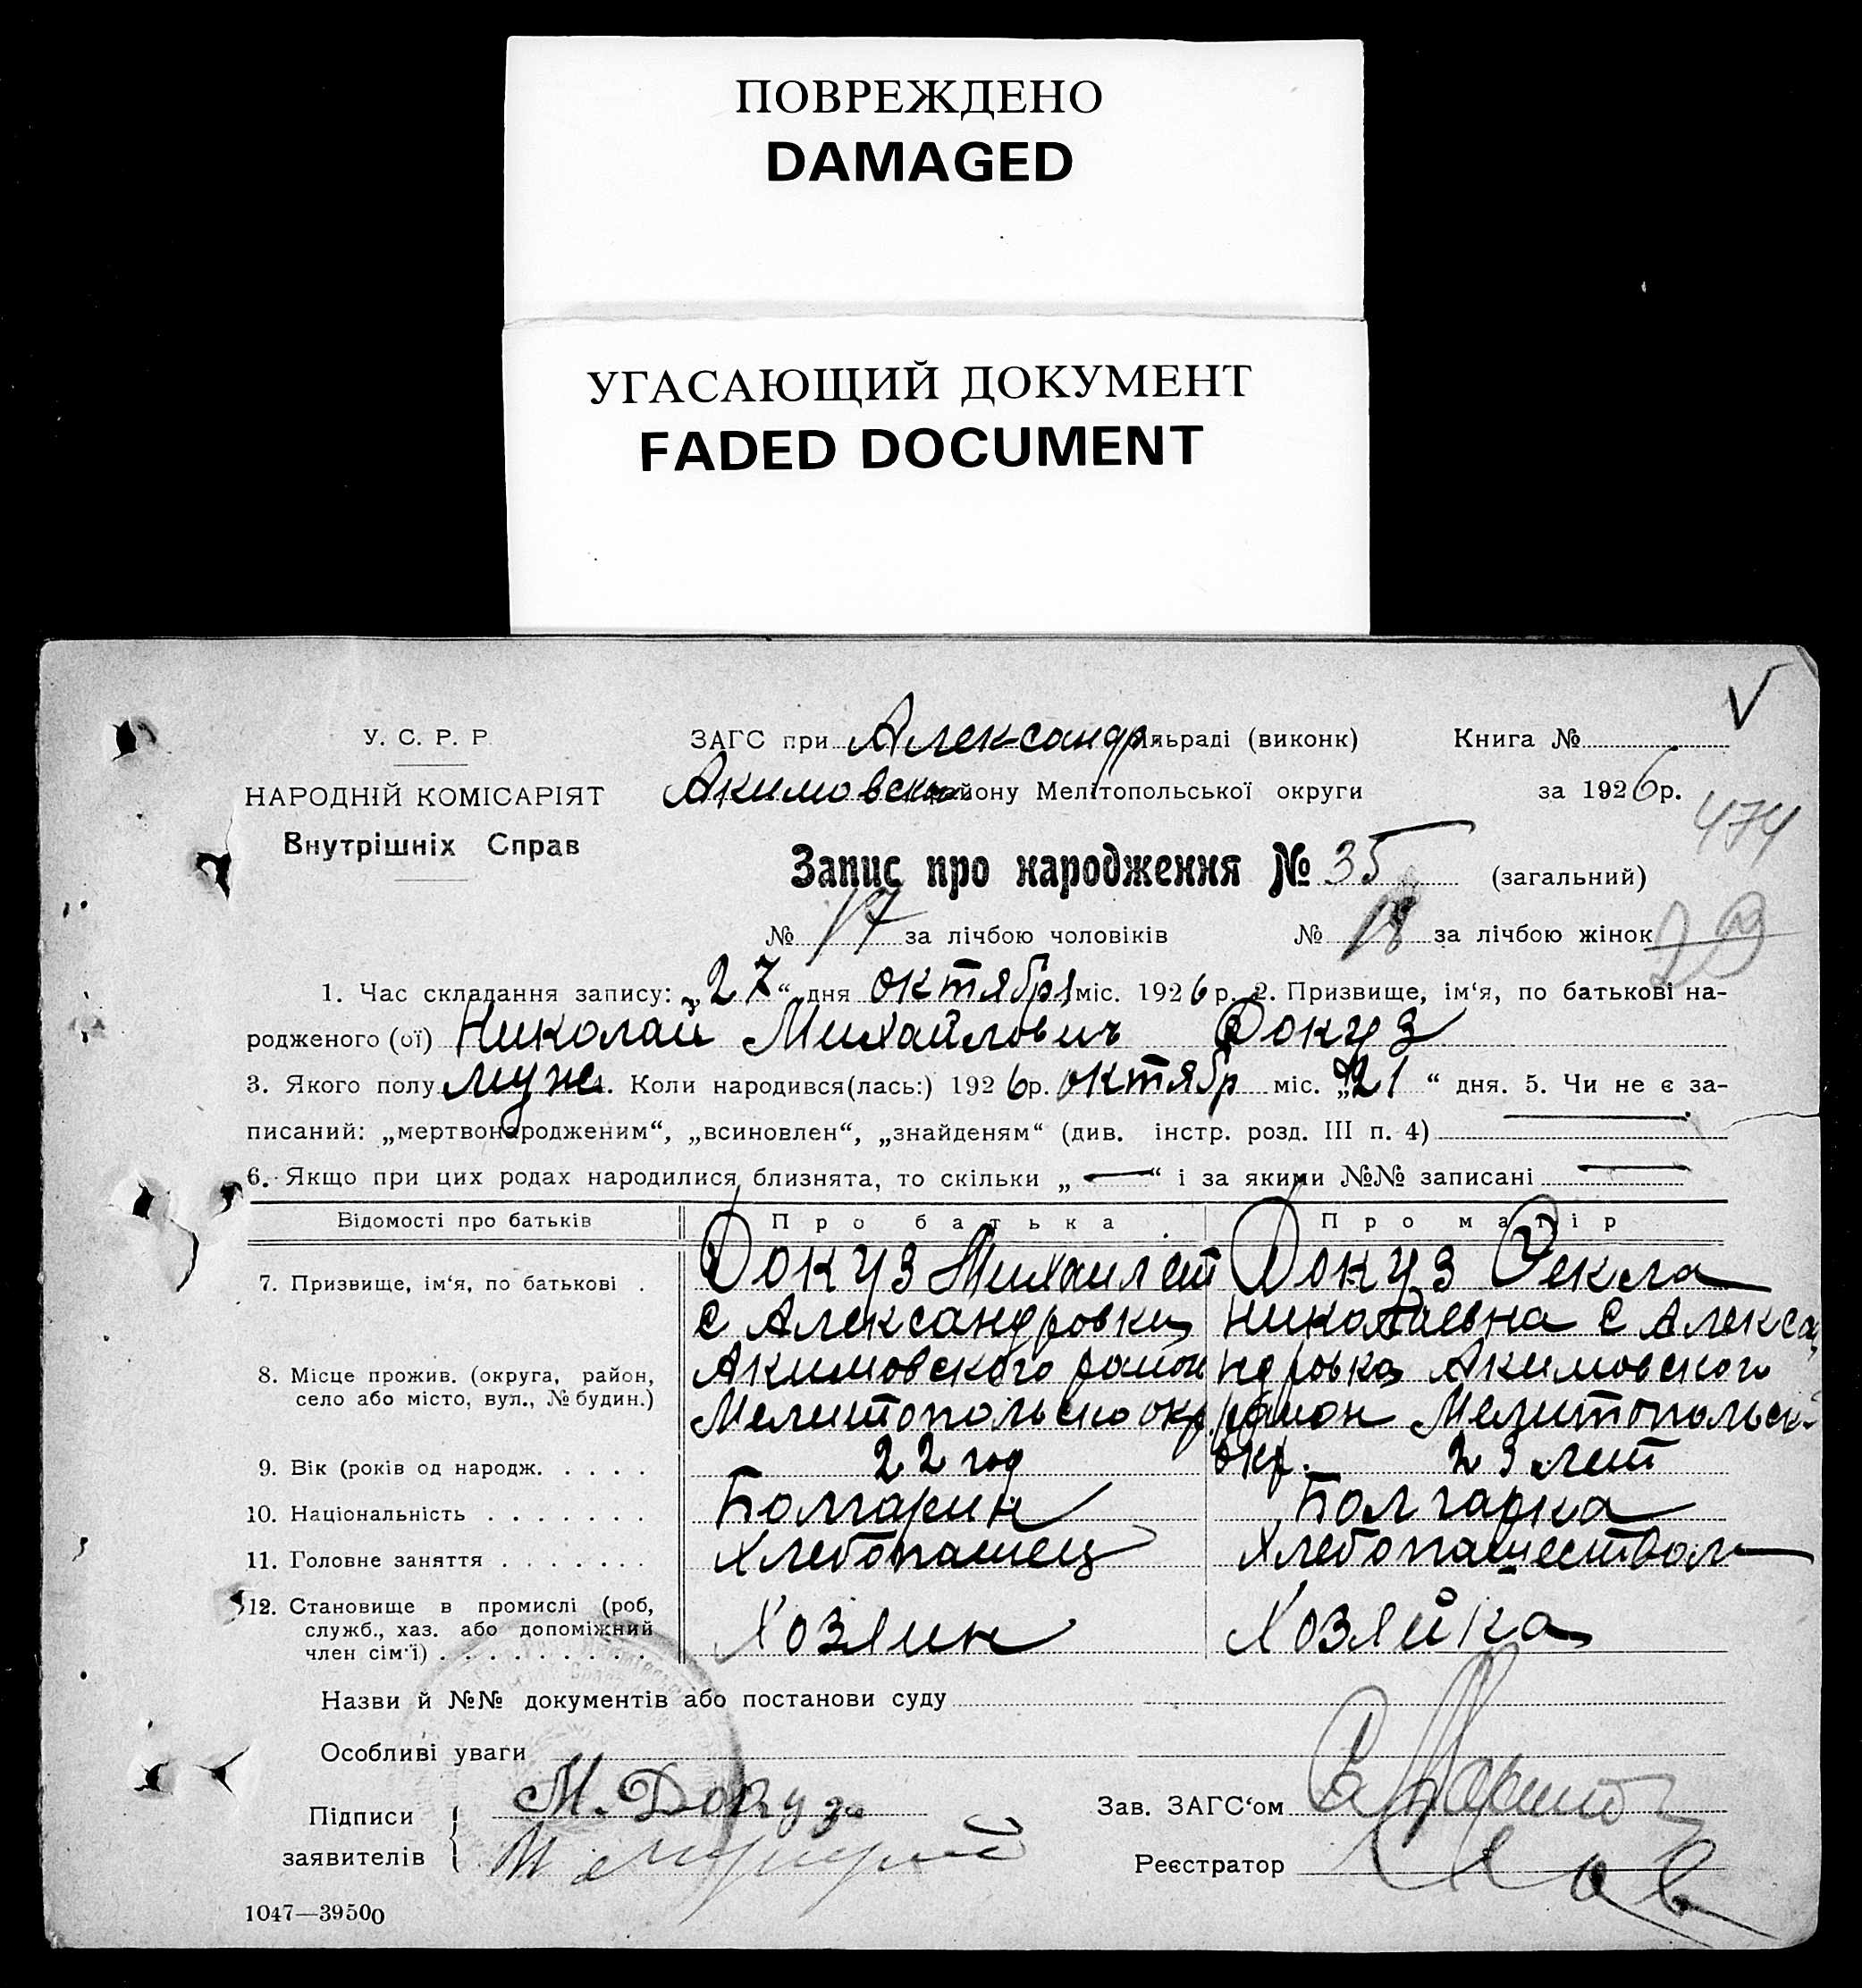 ПОВРЕЖДЕНО
DAMAGED
УГАСАЮЩИЙ ДОКУМЕНТ
FADED DOCUMENT
У. С. Р. Р.
НАРОДНІЙ КОМІСАРІЯТ
Внутрішніх Справ
ЗАГС при Александр. ільраді (виконк) Книга №
Акимовском району Мелітопольської округи за 1926 р.
474
Запис про народження № 35 (загальний)
№ 17 за лічбою чоловіків № 18 за лічбою жінок
29
1. Час складання запису: „27“ дня октября міс. 1926 р. 2. Призвище, ім‘я, по батькові на-
родженого (ої) Николай Михайлович Докуз
3. Якого полу муж. Коли народився(лась:) 1926 р. октябр міс. „21“ дня. 5. Чи не є за-
писаний: „мертвонародженим“, „всиновлен“, „знайденям“ (див. інстр. розд. III п. 4)
6. Якщо при цих родах народилися близнята, то скільки „—“ і за якими №№ записані —
Відомості про батьків Про батька Про матір
7. Призвище, ім‘я, по батькові . Докуз Михаил Докуз Фекла
с Александровки Николаевна с Алекса
8. Місце прожив. (округа, район, село або місто, вул., № будин.) Акимовского район ндровка Акимовского
Мелитопольско окр. район Мелитопольск
9. Вік (років од народж. . . . . 22 год окр. 23 лет
10. Національність . . . . . . . Болгарин Болгарка
11. Головне заняття . . . . . . . Хлебопашец Хлебопашеством
12. Становище в промислі (роб, служб., хаз. або допоміжний член сім‘ї) . . . . . . . . . . Хозяин Хозяйка
Назви й №№ документів або постанови суду
Особливі уваги
Підписи заявителів М. Докуз
Зав. ЗАГС‘ом
Реєстратор
1047—39500